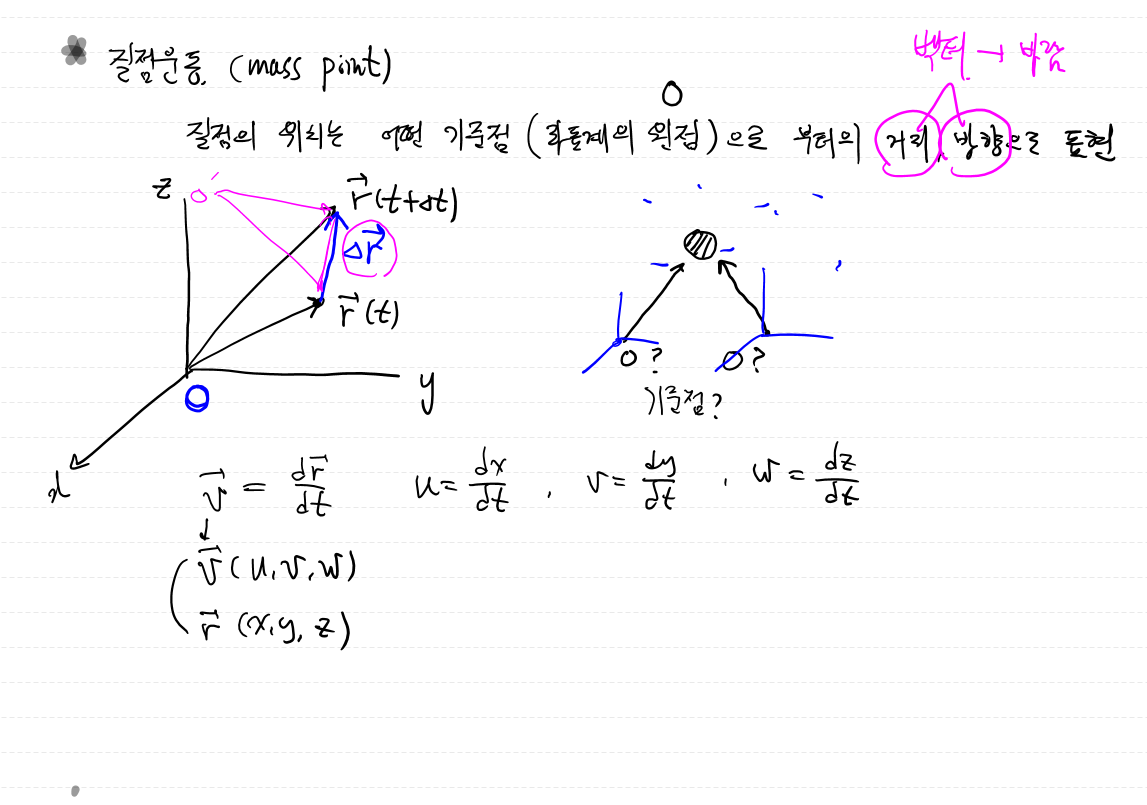 벡터 → 바람
질점운동. (mass point)
O
질점의 위치는 어떤 기준점 (좌표계의 원점) 으로 부터의 거리, 방향으로 표현
z
O′
r⃗(t+Δt)
Δr⃗
r⃗(t)
O
y
x
O? O?
기준점?
v⃗ = dr⃗/dt u = dx/dt , v = dy/dt , w = dz/dt
↓
v⃗ (u, v, w)
r⃗ (x, y, z)